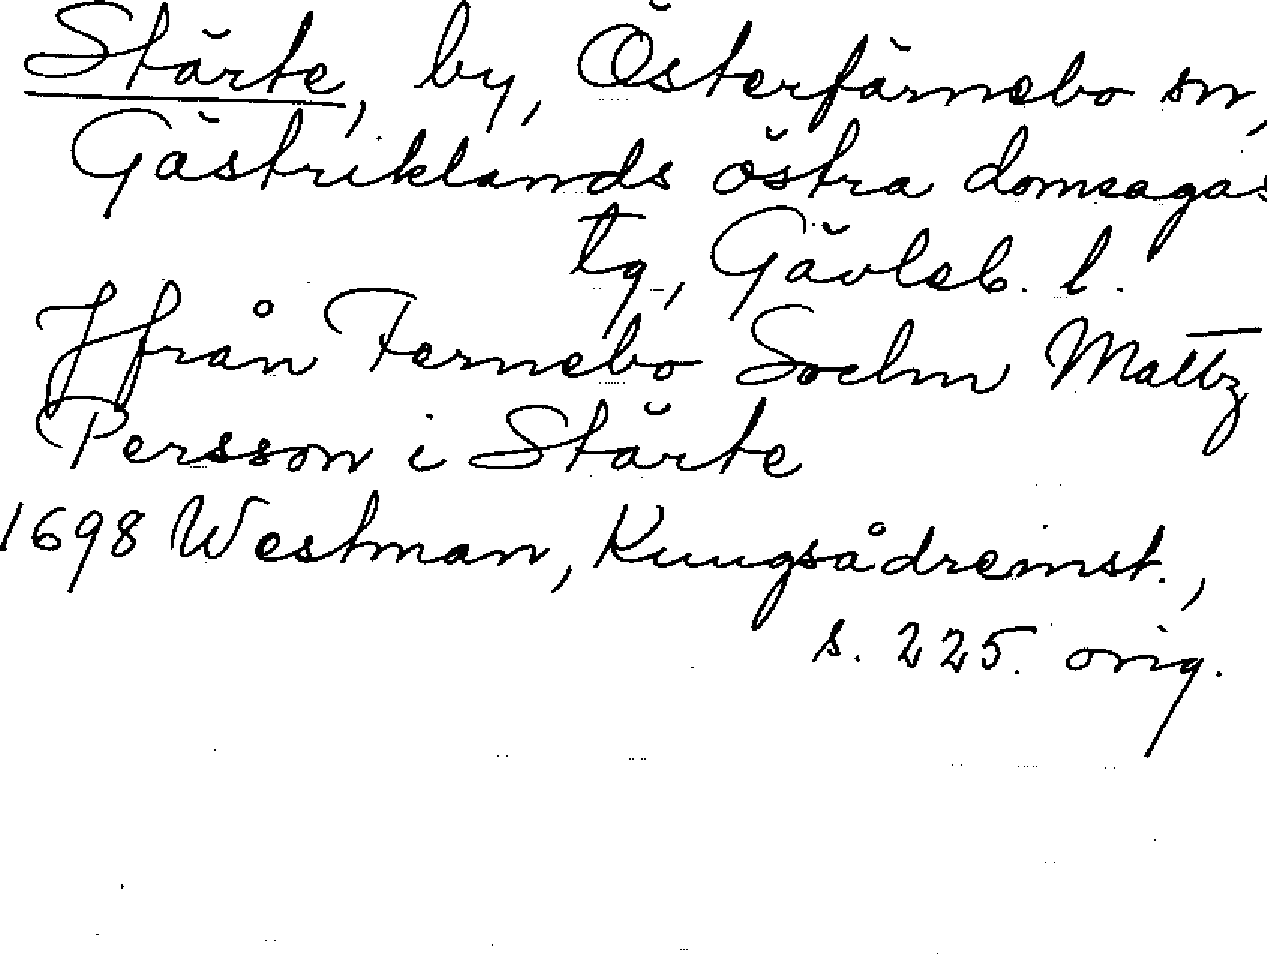 Stärte, by, Österfärnebo sn,
Gästriklands östra domsagas
tg, Gävleb. l.
Ifrån Fernebo Sochn Mattz
Persson i Stärte
1698 Westman, Kungsådreinst.,
s. 225. orig.